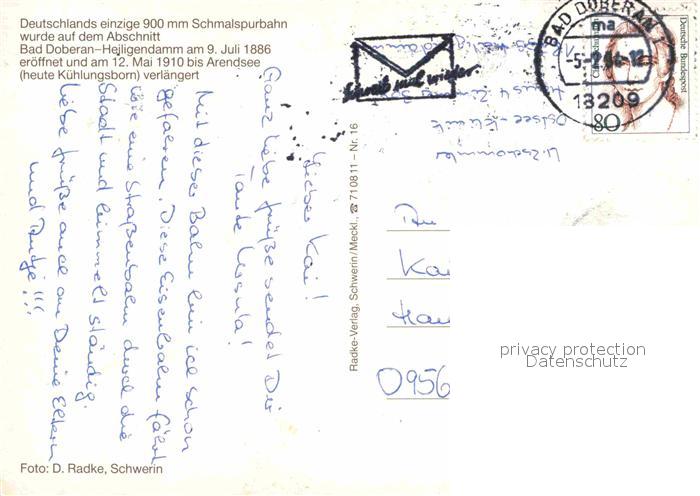 Deutschlands einzige 900 mm Schmalspurbahn
wurde auf dem Abschnitt
Bad Doberan-Heiligendamm am 9. Juli 1886
eröffnet und am 12. Mai 1910 bis Arendsee
(heute Kühlungsborn) verlängert
Lieber Kai!
Ganz liebe Grüße sendet Dir
Tante Ursula!
Mit dieser Bahn bin ich schon
gefahren. Diese Eisenbahn fährt
wie eine Straßenbahn durch die
Stadt und bimmelt ständig.
Liebe Grüße auch an Deine Eltern
und Antje!!!
Foto: D. Radke, Schwerin
Radke-Verlag, Schwerin/Meckl., ☎ 710811 – Nr. 16
Schreib mal wieder.
BAD DOBERAN 1
ma
18209
Deutsche Bundespost
80
Ostsee-Klinik
U. Zschommler
An
Kai
Hau
O956
privacy protection
Datenschutz